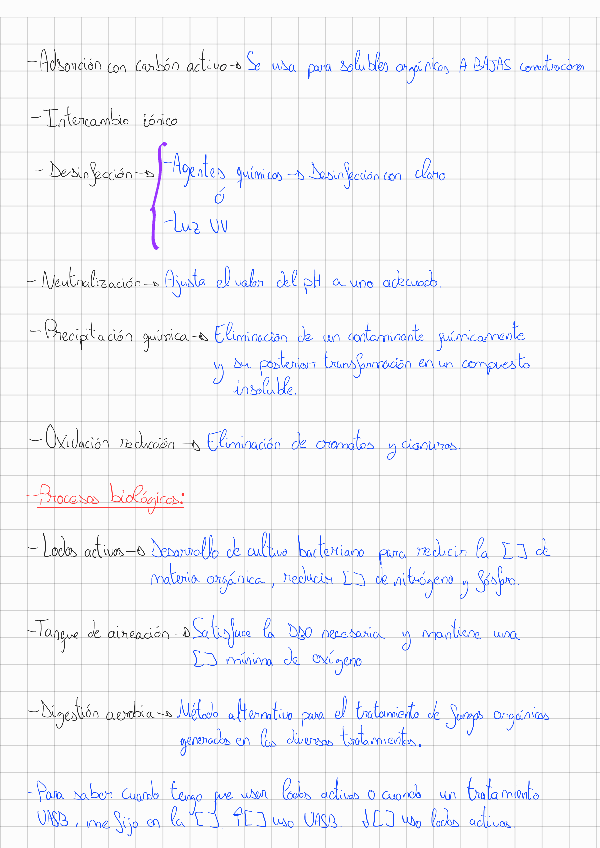 - Adsorción con carbón activo → Se usa para solubles orgánicos A BAJAS concentraciones
- Intercambio iónico
- Desinfección → - Agentes químicos → Desinfección con cloro
ó
- Luz UV
- Neutralización → Ajusta el valor del pH a uno adecuado.
- Precipitación química → Eliminación de un contaminante químicamente
y su posterior transformación en un compuesto
insoluble.
- Oxidación reducción → Eliminación de cromatos y cianuros.
- Procesos biológicos:
- Lodos activos → Desarrollo de cultivo bacteriano para reducir la [ ] de
materia orgánica, reducir [ ] de nitrógeno y fósforo.
- Tanque de aireación → Satisface la DBO necesaria y mantiene una
[ ] mínima de oxígeno
- Digestión aerobia → Método alternativo para el tratamiento de fangos orgánicos
generados en los diversos tratamientos.
- Para saber cuando tengo que usar lodos activos o cuando un tratamiento
UASB, me fijo en la [ ] ↑[ ] uso UASB ↓[ ] uso lodos activos.